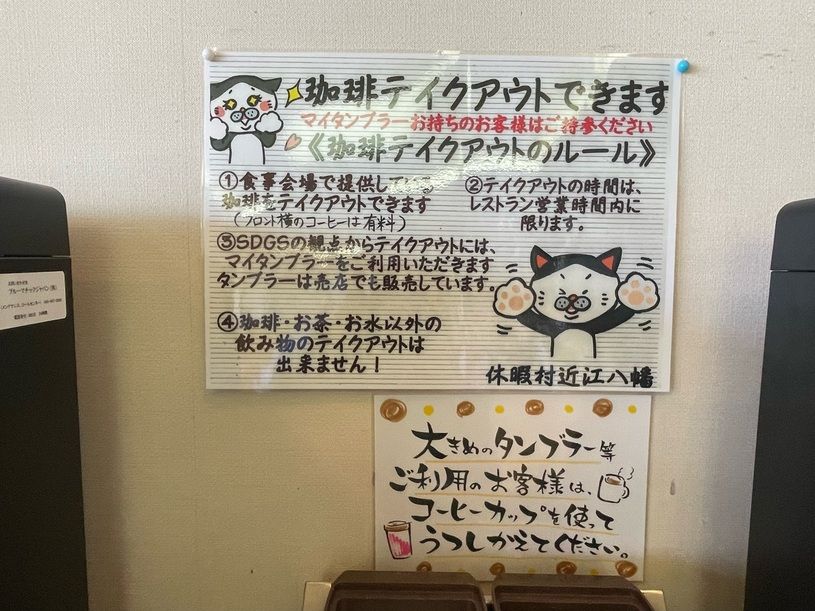 珈琲テイクアウトできます
マイタンブラーお持ちのお客様はご持参ください
《珈琲テイクアウトのルール》
①食事会場で提供している
珈琲をテイクアウトできます
(フロント横のコーヒーは有料)
②テイクアウトの時間は、
レストラン営業時間内に
限ります。
③SDGSの観点からテイクアウトには、
マイタンブラーをご利用いただきます
タンブラーは売店でも販売しています。
④珈琲・お茶・お水以外の
飲み物のテイクアウトは
出来ません!
休暇村近江八幡
大きめのタンブラー等
ご利用のお客様は、
コーヒーカップを使って
うつしかえてください。
ブルーマチックジャパン(株)